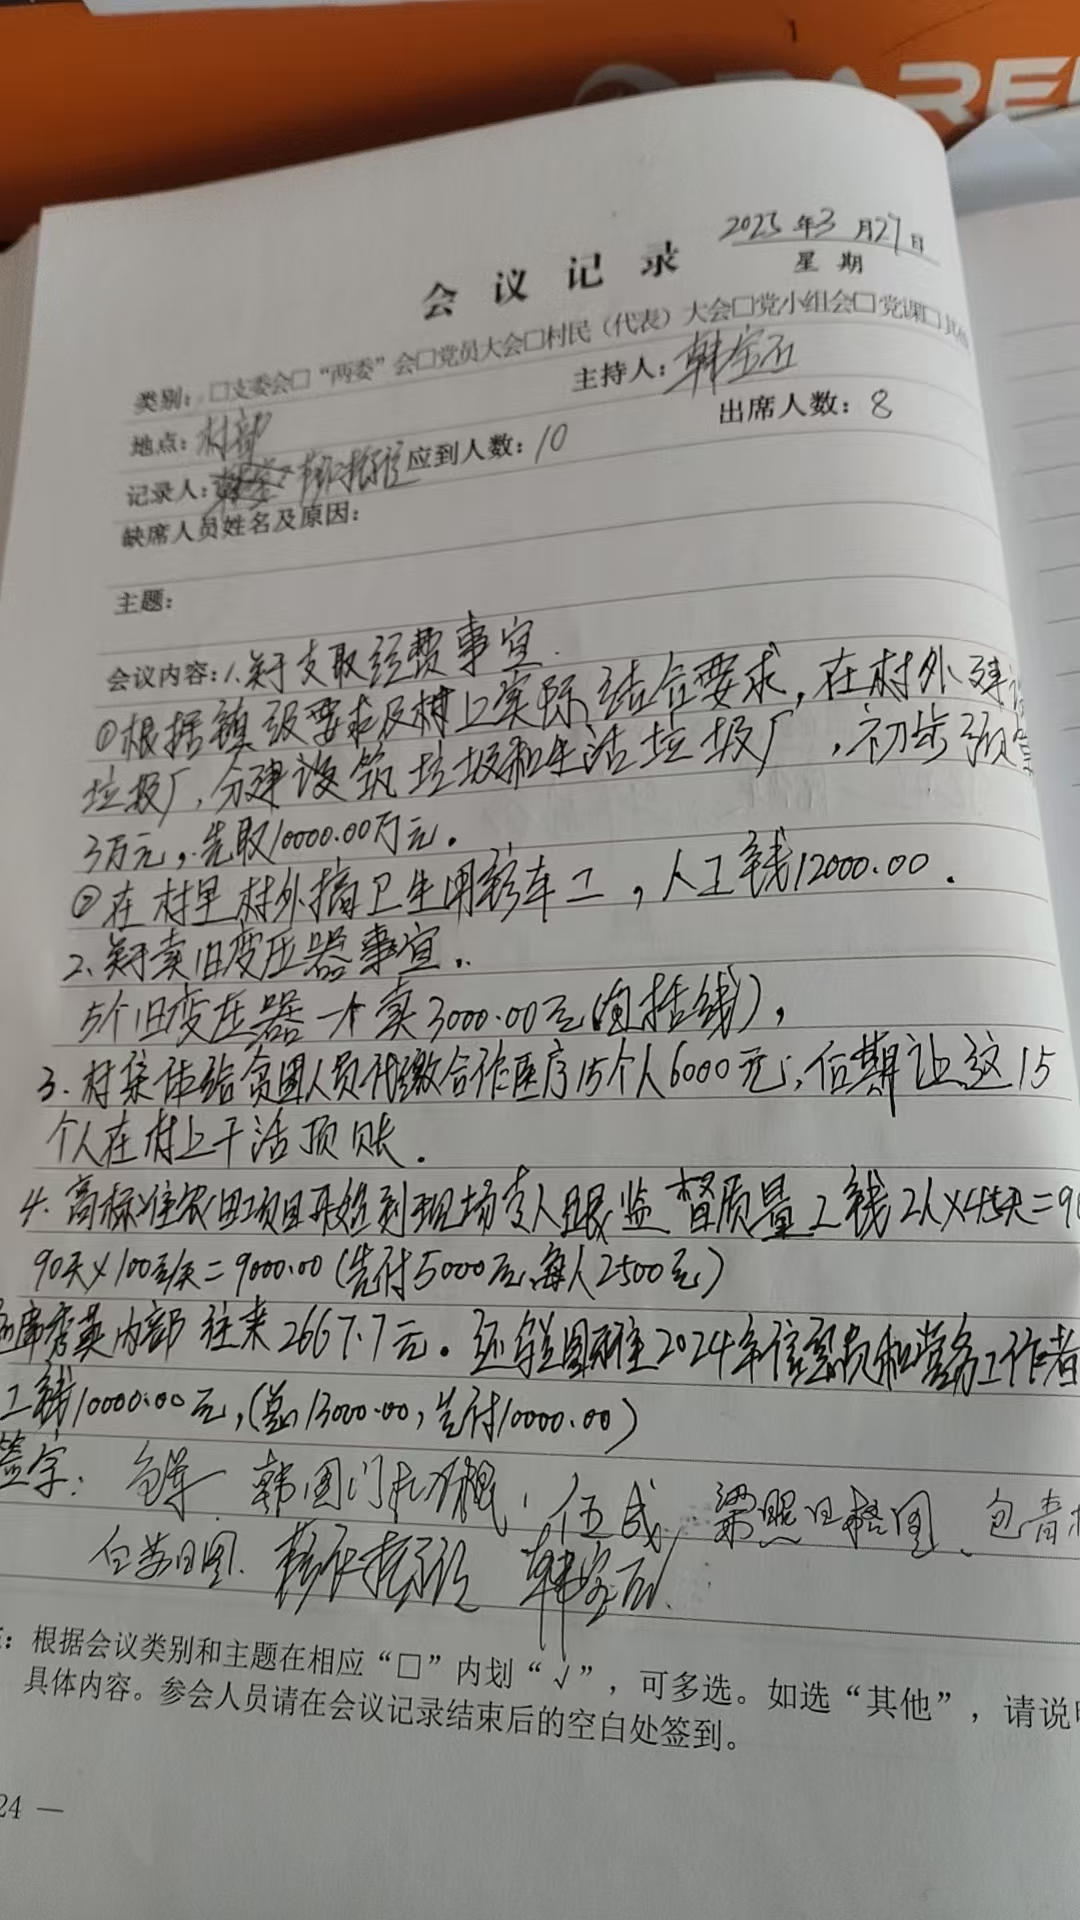 2025年3月27日
会议记录
星期
类别：□支委会□“两委”会□党员大会□村民（代表）大会□党小组会□党课□其他
地点：村部
主持人：韩宝石
记录人： 应到人数：10
出席人数：8
缺席人员姓名及原因：
主题：
会议内容：1.关于支取经费事宜.
①根据镇级要求及村上实际结合要求，在村外建设
垃圾厂，分建设筑垃圾和生活垃圾厂，初步预算
3万元，先取10000.00万元。
②在村里村外搞卫生用铲车工，人工钱12000.00.
2、关于卖旧变压器事宜..
5个旧变压器一个卖3000.00元(包括线)，
3.村集体给贫困人员代缴合作医疗15个人6000元，后期让这15
个人在村上干活顶账.
4.高标准农田项目开始到现场专人跟监督质量工钱2人×45天=90
90天×100元/天=9000.00(先付5000元,每人2500元)
席秀英内部往来2667.7元。还 2024年信息员和党务工作者
工钱10000.00元,(总13000.00,先付10000.00)
签字：
注：根据会议类别和主题在相应“□”内划“√”，可多选。如选“其他”，请说明
具体内容。参会人员请在会议记录结束后的空白处签到。
24 —